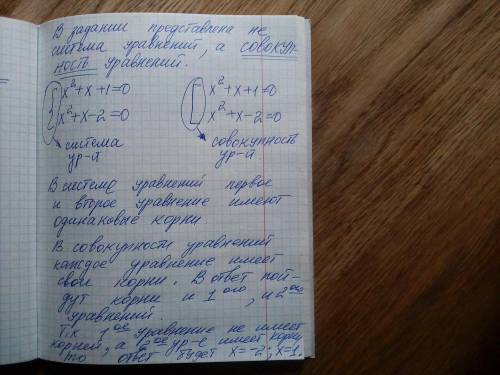 В задании представлена не
система уравнений, а совокуп-
ность уравнений.
{ x²+x+1=0 [ x²+x+1=0
x²+x-2=0 x²+x-2=0
система совокупность
ур-й ур-й
В системе уравнений первое
и второе уравнение имеют
одинаковые корни.
В совокупности уравнений
каждое уравнение имеет
свои корни. В ответ пой-
дут корни и 1ого, и 2ого
уравнений.
Т.к. 1ое уравнение не имеет
корней, а 2ое ур-е имеет корни,
то ответ будет x=-2; x=1.